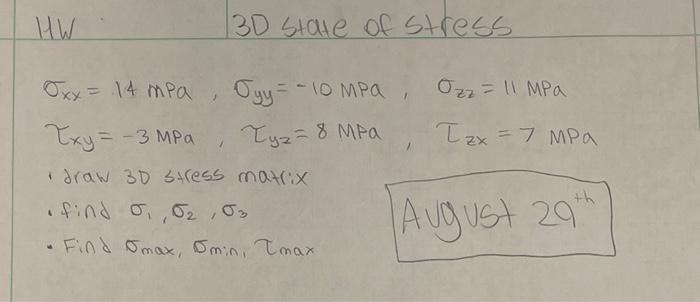 HW 3D state of stress
σxx = 14 mPa , σyy = -10 MPa , σzz = 11 MPa
τxy = -3 MPa , τyz = 8 MPa , τzx = 7 MPa
• draw 3D stress matrix
• find σ1, σ2, σ3
• Find σmax, σmin, τmax
August 29th